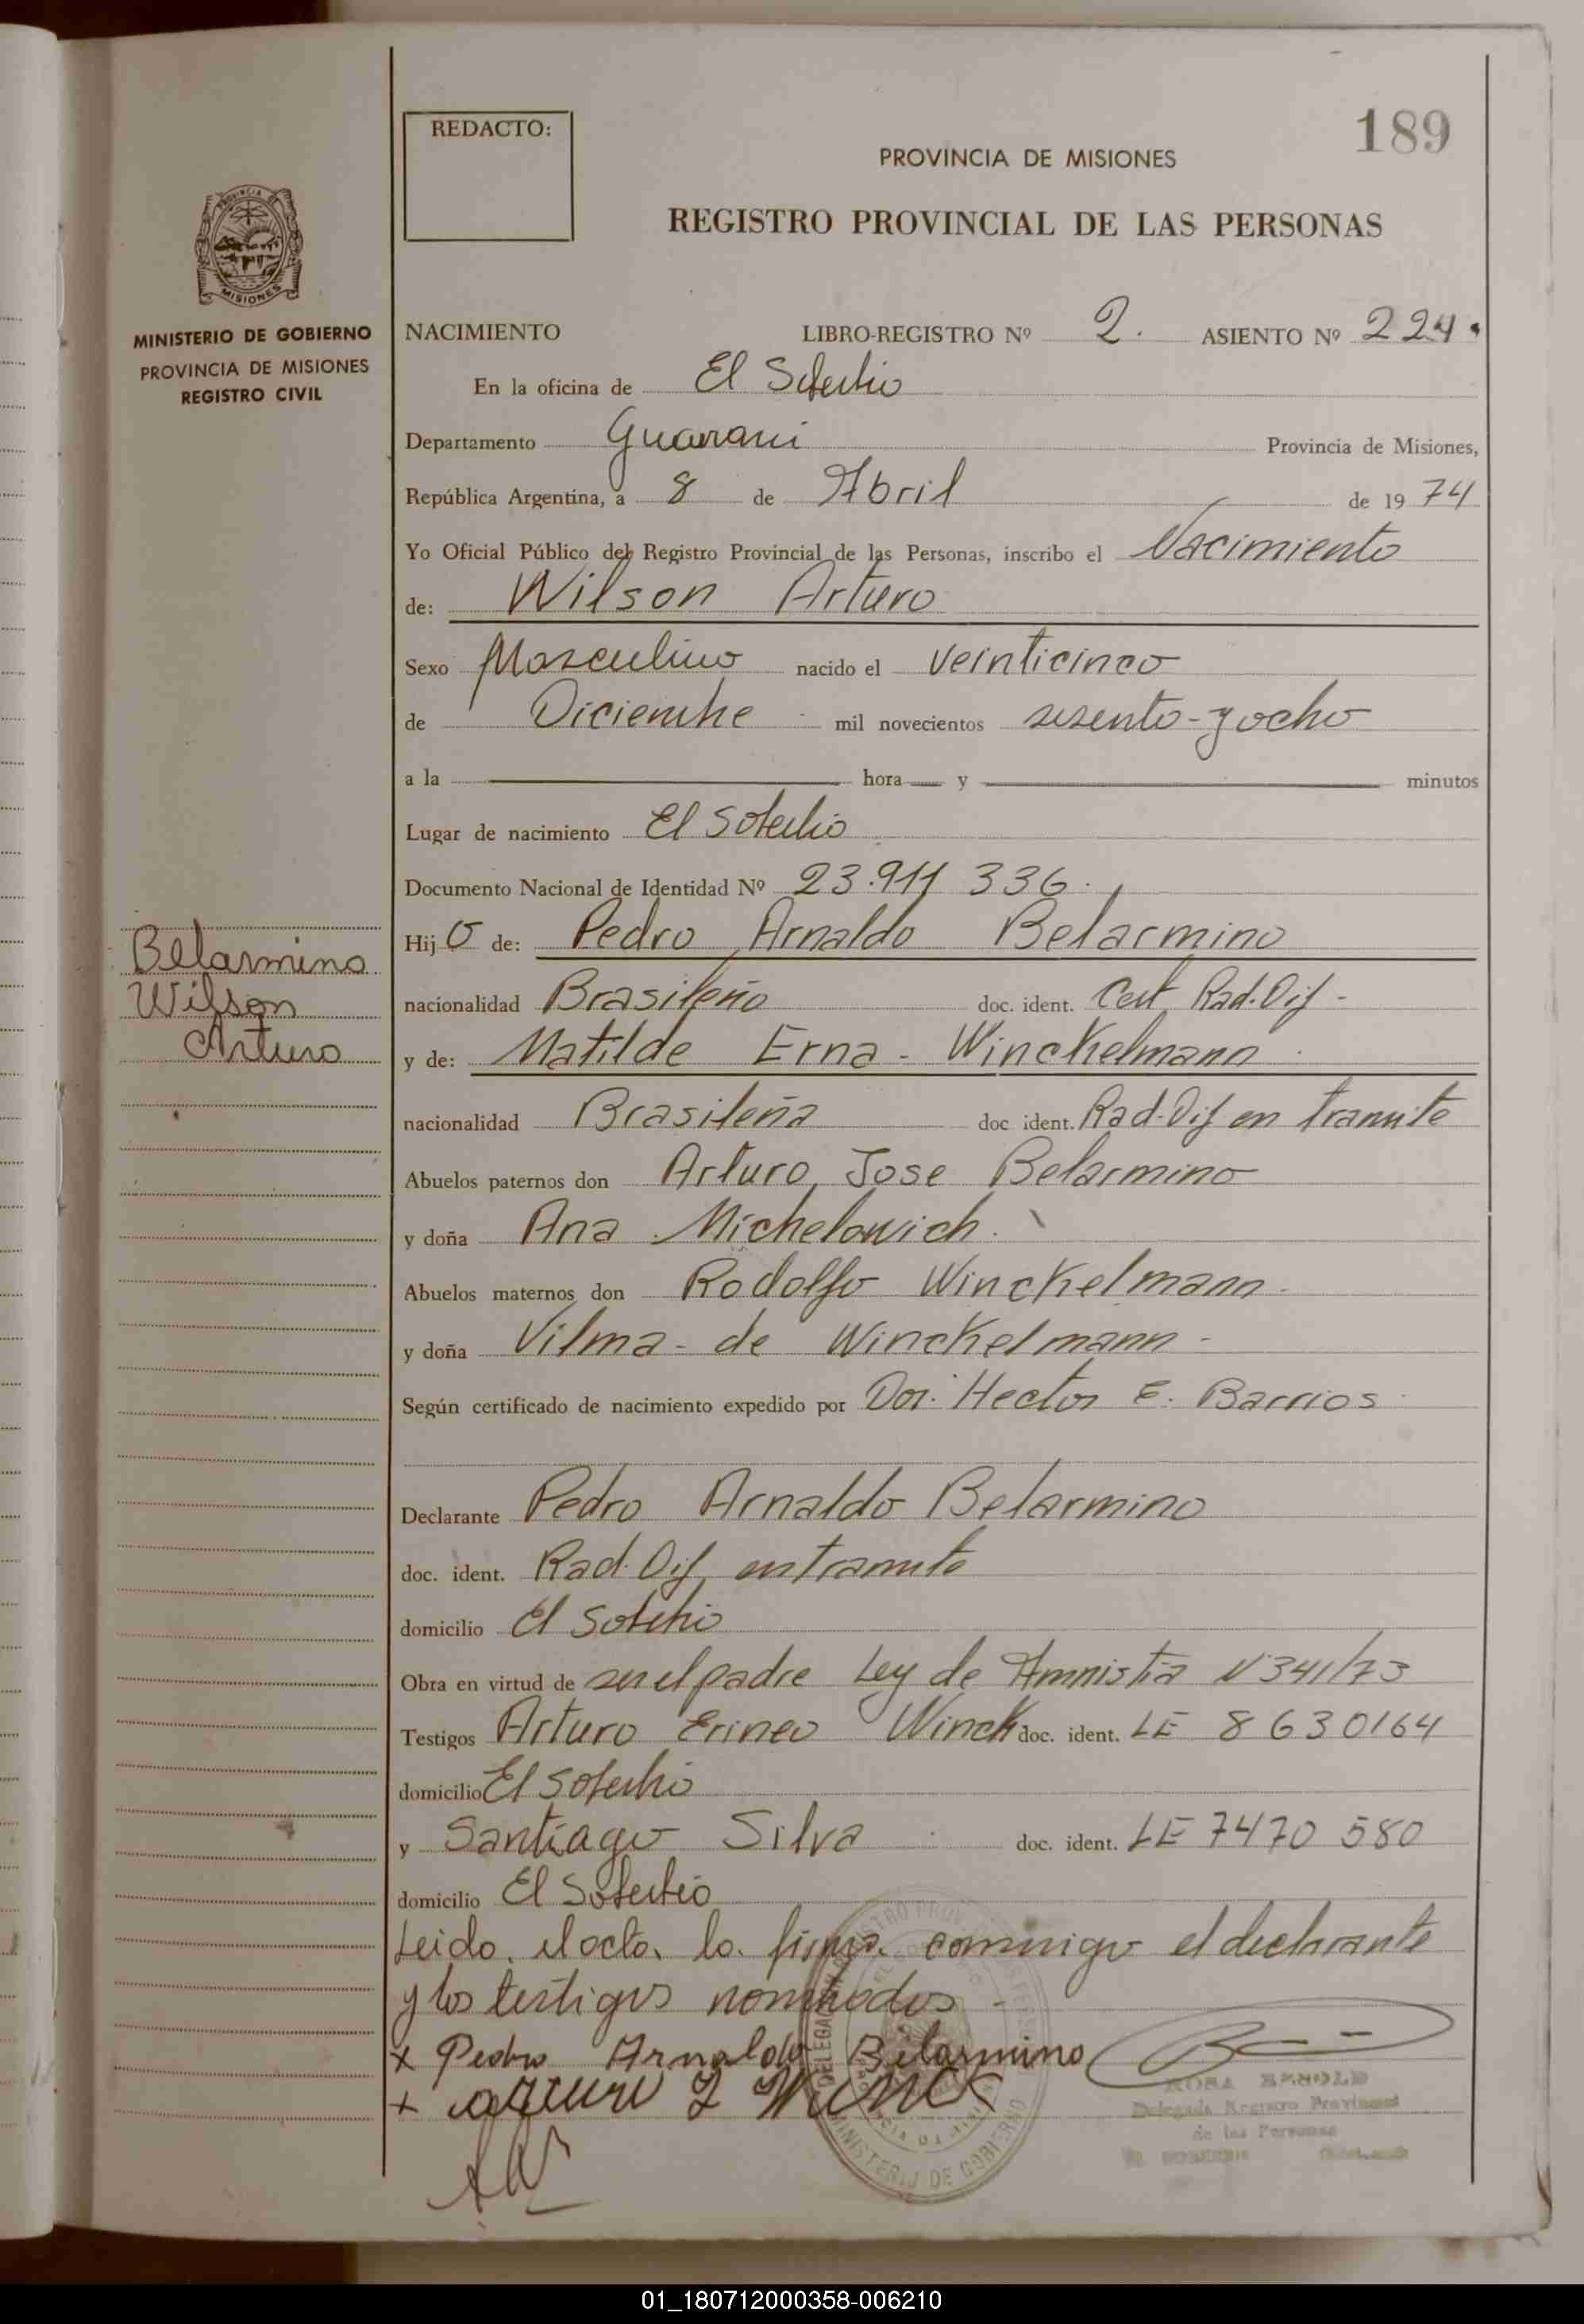 189
REDACTO:
PROVINCIA DE MISIONES
REGISTRO PROVINCIAL DE LAS PERSONAS
PROVINCIA DE
MISIONES
MINISTERIO DE GOBIERNO
PROVINCIA DE MISIONES
REGISTRO CIVIL
NACIMIENTO LIBRO-REGISTRO Nº 2. ASIENTO Nº 224.
En la oficina de El Soberbio
Departamento Guarani Provincia de Misiones,
República Argentina, a 8 de Abril de 1974
Yo Oficial Público del Registro Provincial de las Personas, inscribo el Nacimiento
de: Wilson Arturo
Sexo Masculino nacido el veinticinco
de Diciembre mil novecientos sesenta-y ocho
a la hora y minutos
Lugar de nacimiento El Soberbio
Documento Nacional de Identidad Nº 23.911 336.
Hijo de: Pedro Arnaldo Belarmino
nacionalidad Brasileño doc. ident. Cert Rad. Dif -
y de: Matilde Erna - Winckelmann
nacionalidad Brasileña doc ident. Rad. Dif en tramite
Abuelos paternos don Arturo Jose Belarmino
y doña Ana Michelowich.
Abuelos maternos don Rodolfo Winckelmann -
y doña Vilma - de Winckelmann -
Según certificado de nacimiento expedido por Dor. Hector E. Barrios
Declarante Pedro Arnaldo Belarmino
doc. ident. Rad. Dif en tramite
domicilio El Soberbio
Obra en virtud de ser el padre Ley de Amnistia Nº 341/73
Testigos Arturo Erineo Winck doc. ident. LE 8630164
domicilio El Soberbio
y Santiago Silva doc. ident. LE 7470 580
domicilio El Soberbio
Leido el acta, la firma conmigo el declarante
y los testigos nombrados -
x Pedro Arnaldo Belarmino
+ Arturo E Winck
Delegada Registro Provincial
de las Personas
MINISTERIO DE GOBIERNO
Belarmino
Wilson
Arturo
01_180712000358-006210